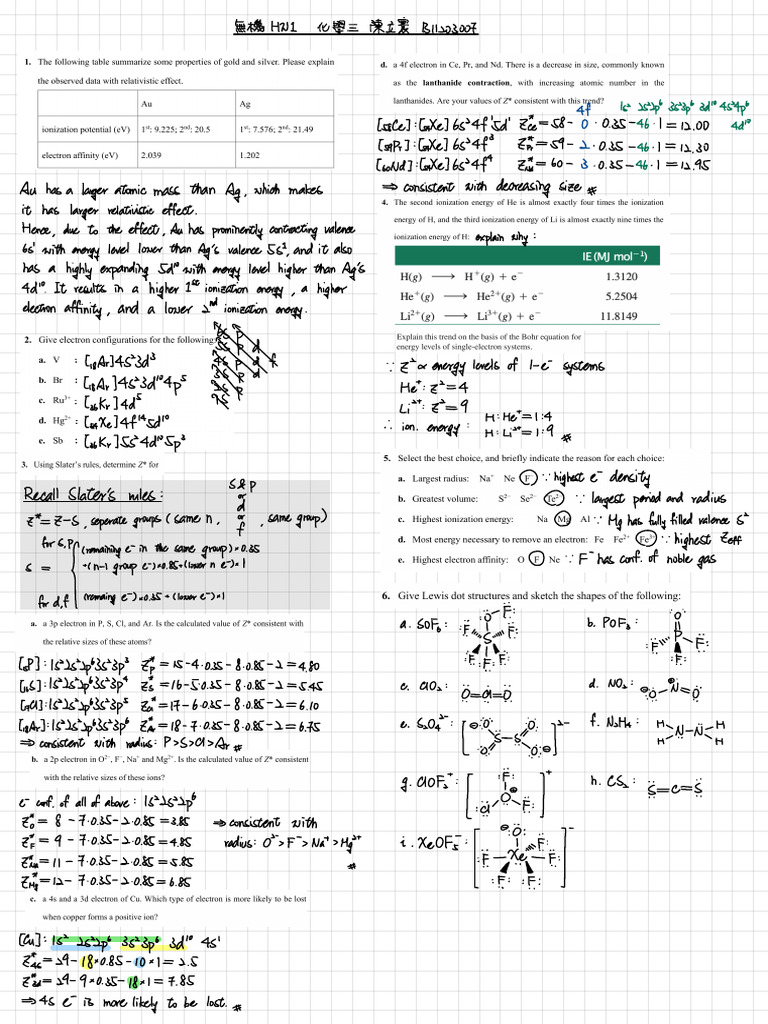 無機 HW1 化學三 陳立寰 B11203007
1. The following table summarize some properties of gold and silver. Please explain
the observed data with relativistic effect.
Au Ag
ionization potential (eV) 1st: 9.225; 2nd: 20.5 1st: 7.576; 2nd: 21.49
electron affinity (eV) 2.039 1.202
Au has a larger atomic mass than Ag, which makes
it has larger relativistic effect.
Hence, due to the effect, Au has prominently contracting valence
6s¹ with energy level lower than Ag's valence 5s², and it also
has a highly expanding 5d¹⁰ with energy level higher than Ag's
4d¹⁰. It results in a higher 1st ionization energy, a higher
electron affinity, and a lower 2nd ionization energy.
2. Give electron configurations for the following:
a. V : [₁₈Ar]4s²3d³
b. Br : [₁₈Ar]4s²3d¹⁰4p⁵
c. Ru³⁺ : [₃₆Kr]4d⁵
d. Hg²⁺ : [₅₄Xe]4f¹⁴5d¹⁰
e. Sb : [₃₆Kr]5s²4d¹⁰5p³
3. Using Slater's rules, determine Z* for
Recall Slater's rules:
Z* = Z-S, seperate groups (same n, s&p or d or f, same group)
S =
for s,p (remaining e⁻ in the same group)×0.35
+(n-1 group e⁻)×0.85+(lower n e⁻)×1
for d,f (remaing e⁻)×0.35+(lower e⁻)×1
a. a 3p electron in P, S, Cl, and Ar. Is the calculated value of Z* consistent with
the relative sizes of these atoms?
[₁₅P]: 1s²2s²2p⁶3s²3p³ Z*P = 15-4·0.35-8·0.85-2=4.80
[₁₆S]: 1s²2s²2p⁶3s²3p⁴ Z*S = 16-5·0.35-8·0.85-2=5.45
[₁₇Cl]: 1s²2s²2p⁶3s²3p⁵ Z*Cl = 17-6·0.35-8·0.85-2=6.10
[₁₈Ar]: 1s²2s²2p⁶3s²3p⁶ Z*Ar = 18-7·0.35-8·0.85-2=6.75
⇒ consistent with radius: P>S>Cl>Ar #
b. a 2p electron in O²⁻, F⁻, Na⁺ and Mg²⁺. Is the calculated value of Z* consistent
with the relative sizes of these ions?
e⁻ conf. of all of above: 1s²2s²2p⁶
Z*O = 8-7·0.35-2·0.85=3.85 ⇒ consistent with
Z*F = 9-7·0.35-2·0.85=4.85 radius: O²⁻>F⁻>Na⁺>Mg²⁺
Z*Na = 11-7·0.35-2·0.85=5.85 #
Z*Mg = 12-7·0.35-2·0.85=6.85
c. a 4s and a 3d electron of Cu. Which type of electron is more likely to be lost
when copper forms a positive ion?
[Cu]: 1s² 2s²2p⁶ 3s²3p⁶ 3d¹⁰ 4s¹
Z*4s = 29-18×0.85-10×1=2.5
Z*3d = 29-9×0.35-18×1=7.85
⇒ 4s e⁻ is more likely to be lost. #
d. a 4f electron in Ce, Pr, and Nd. There is a decrease in size, commonly known
as the lanthanide contraction, with increasing atomic number in the
lanthanides. Are your values of Z* consistent with this trend?
4f 1s² 2s²2p⁶ 3s²3p⁶ 3d¹⁰ 4s²4p⁶
4d¹⁰
[₅₈Ce]: [₅₄Xe]6s²4f¹5d¹ Z*Ce = 58-0·0.35-46·1=12.00
[₅₉Pr]: [₅₄Xe]6s²4f³ Z*Pr = 59-2·0.35-46·1=12.30
[₆₀Nd]: [₅₄Xe]6s²4f⁴ Z*Nd = 60-3·0.35-46·1=12.95
⇒ consistent with decreasing size #
4. The second ionization energy of He is almost exactly four times the ionization
energy of H, and the third ionization energy of Li is almost exactly nine times the
ionization energy of H: explain why:
IE (MJ mol⁻¹)
H(g) ⟶ H⁺(g) + e⁻ 1.3120
He⁺(g) ⟶ He²⁺(g) + e⁻ 5.2504
Li²⁺(g) ⟶ Li³⁺(g) + e⁻ 11.8149
Explain this trend on the basis of the Bohr equation for
energy levels of single-electron systems.
∵ Z² ∝ energy levels of 1-e⁻ systems
He⁺: Z²=4
Li²⁺: Z²=9
∴ ion. energy: H:He⁺=1:4
H:Li²⁺=1:9 #
5. Select the best choice, and briefly indicate the reason for each choice:
a. Largest radius: Na⁺ Ne F ∵ highest e⁻ density
b. Greatest volume: S²⁻ Se²⁻ Te²⁻ ∵ largest period and radius
c. Highest ionization energy: Na Mg Al ∵ Mg has fully filled valence s²
d. Most energy necessary to remove an electron: Fe Fe²⁺ Fe³⁺ ∵ highest Zeff
e. Highest electron affinity: O F Ne ∵ F⁻ has conf. of noble gas
6. Give Lewis dot structures and sketch the shapes of the following:
a. SOF₆: F O F S F F F F
b. POF₃: O P F F F
c. ClO₂: O=Cl=O
d. NO₂: ⊖O-N⊕=O
e. S₂O₄²⁻: [⊖O O S-S O O⊖]²⁻
f. N₂H₄: H H N-N H H
g. ClOF₂⁺: [F Cl O F F]⁺
h. CS₂: S=C=S
i. XeOF₅⁻: [⊖O F Xe F F F F]⁻